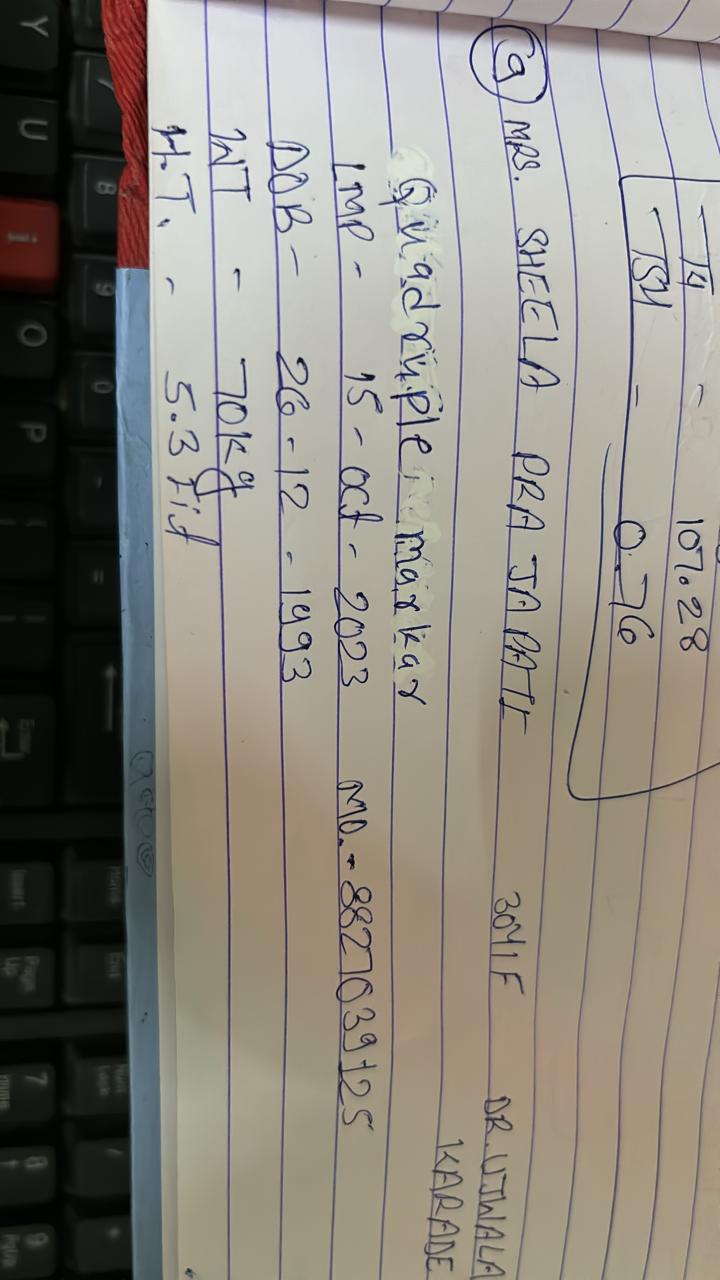 T4 - 107.28
TSH - 0.76
9 MRS. SHEELA PRAJAPATI 30Y1F DR. UJWALA KARADE
Quadruple markar
LMP - 15 - oct - 2023 MO. - 8827039125
DOB - 26 - 12 - 1993
WT - 70kg
H.T. - 5.3